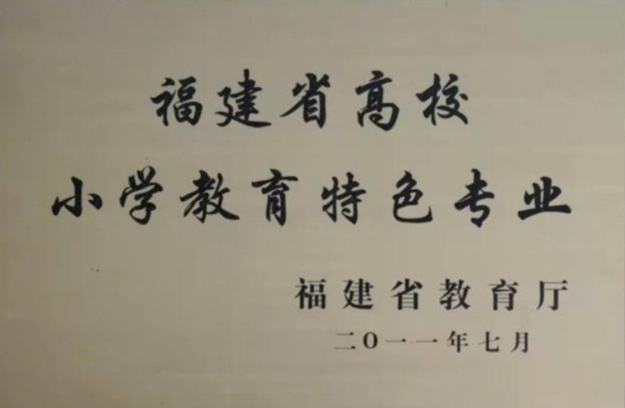 福建省高校
小学教育特色专业
福建省教育厅
二〇一一年七月